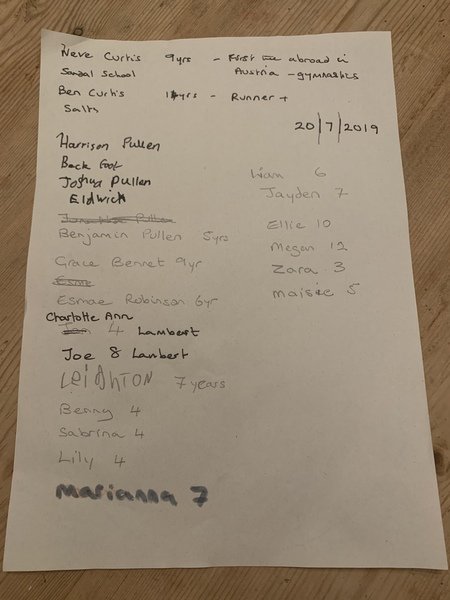 Neve Curtis 9yrs - First time abroad in
Sandal School Austria - gymnastics
Ben Curtis yrs - Runner +
Salts
20/7/2019
Harrison Pullen
Beck Foot
Joshua Pullen
Eldwick
Benjamin Pullen 5yrs
Grace Bennet 9yr
Esme
Esmae Robinson 6yr
Charlotte Ann
4 Lambert
Joe 8 Lambert
LEIGHTON 7 years
Benny 4
Sabrina 4
Lily 4
marianna 7
6
Jayden 7
Ellie 10
Megan 12
Zara 3
maisie 5